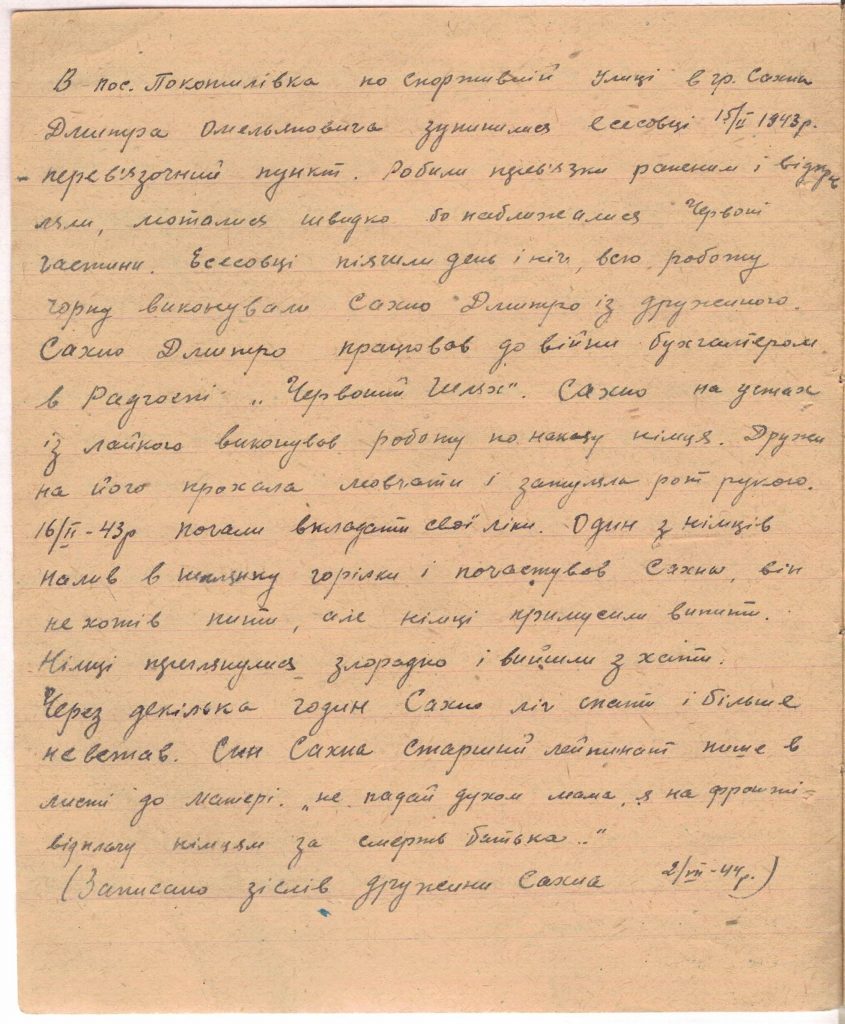 В пос. Покотилівка по Спортивній улиці в гр. Сахна
Дмитра Омельяновича зупинилися есесовці 15/II 1943р.
- перев'язочний пункт. Робили перев'язки раненим і відпра
ляли, моталися швидко бо наближалися Червоні
частини. Есесовці піячили день і ніч, всю роботу
чорну виконували Сахно Дмитро із дружиною.
Сахно Дмитро працював до війни бухгалтером
в Радгоспі „Червоний Шлях". Сахно на устах
із лайкою виконував роботу по наказу німця. Дружи
на його прохала мовчати і затуляла рот рукою.
16/II - 43р почали вкладати свої ліки. Один з німців
налив в шклянку горілки і почастував Сахна, він
не хотів пити, але німці примусили випити.
Німці переглянулися злорадно і вийшли з хати.
Через декілька годин Сахно ліг спати і більше
не встав. Син Сахна старший лейтинант пише в
листі до матері. „не падай духом мама, я на фронті -
відплачу німцям за смерть батька.."
(Записано зі слів дружини Сахна 2/VII - 44р.)